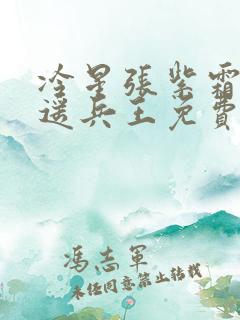 冷星張紫霜
遥兵王免費
馮志軍
未經同意禁止轉載